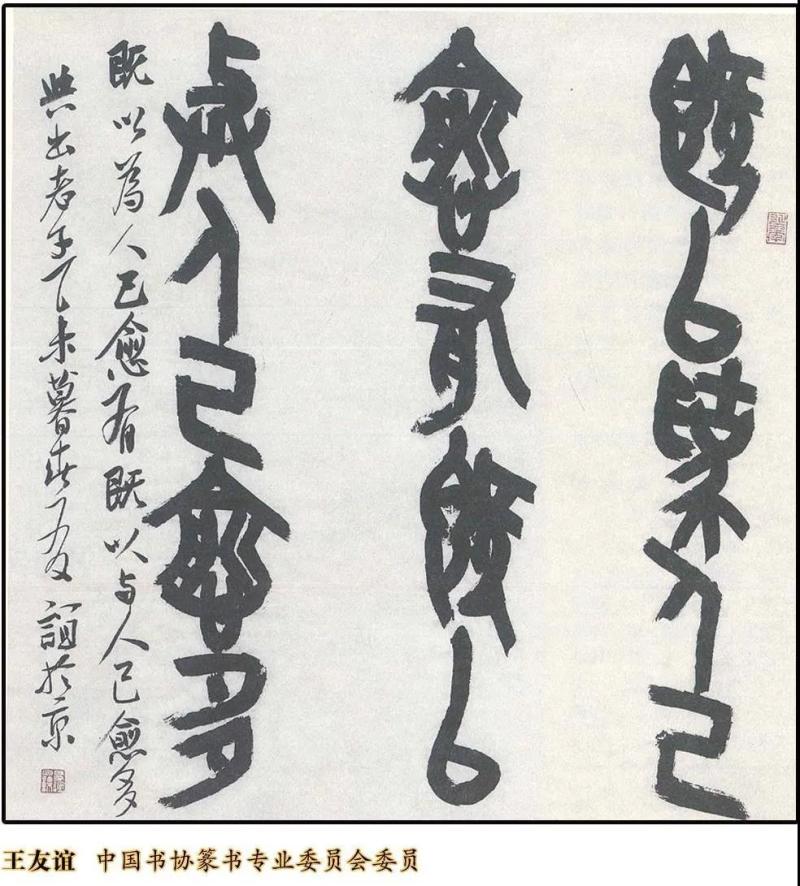 既以為人己
愈有既以
與人己愈多
既以為人己愈有既以与人己愈多
典出老子乙未暮春友誼於京
王友谊 中国书协篆书专业委员会委员